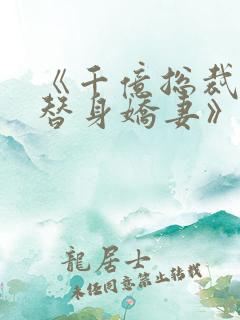 《千億总裁
替身嬌妻》
龍居士
未經同意禁止转载